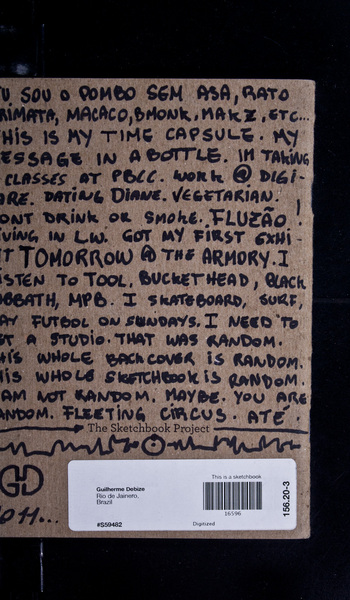 TU SOU O POMBO SEM ASA, RATO
RIMATA, MACACO, BMONK, MAKZ, ETC...
THIS IS MY TIME CAPSULE. MY
ESSAGE IN A BOTTLE. IM TAKING
CLASSES AT PBCC. WORK @ DIGI-
ARE. DATING DIANE. VEGETARIAN
ONT DRINK OR SMOKE. FLUZÃO!
IVING IN L.W. GOT MY FIRST EXHI-
IT TOMORROW @ THE ARMORY. I
ISTEN TO TOOL, BUCKETHEAD, BLACK
ABBATH, MPB. I SKATEBOARD, SURF,
AY FUTBOL ON SUNDAYS. I NEED TO
ET A STUDIO. THAT WAS RANDOM.
HIS WHOLE BACK COVER IS RANDOM.
HIS WHOLE SKETCHBOOK IS RANDOM.
AM NOT RANDOM. MAYBE. YOU ARE
ANDOM. FLEETING CIRCUS. ATÉ
The Sketchbook Project
2011...
This is a sketchbook
Guilherme Debize
Rio de Janeiro,
Brazil
16596
#S59482
Digitized
156.20-3